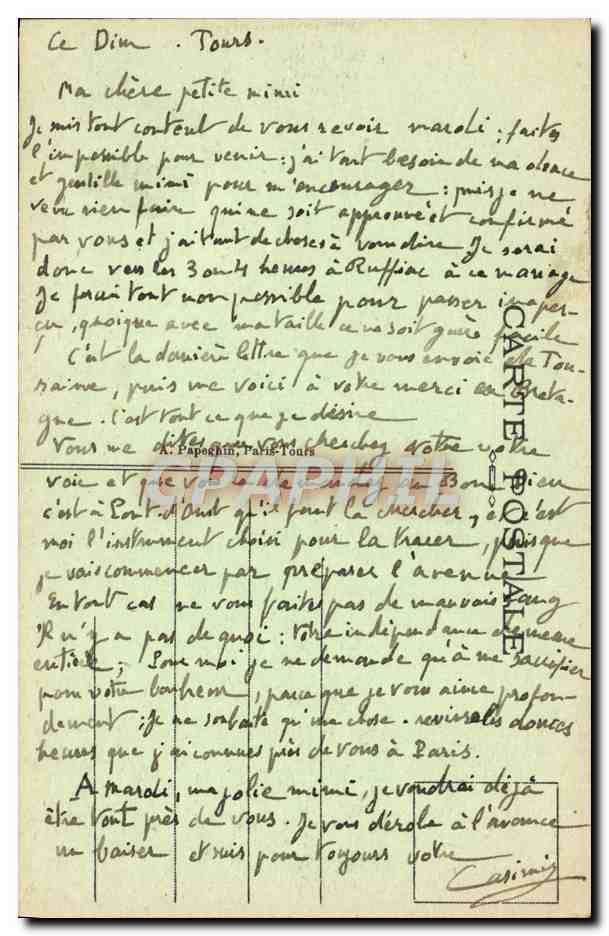 Ce Dim . Tours.
Ma chère petite mimi
Je suis tout content de vous revoir mardi ; faites
l'impossible pour venir : j'ai tant besoin de ma
et gentille mimi pour m'encourager : puis je ne
veux rien faire qui ne soit approuvé et confirmé
par vous et j'ai tant de choses à vous dire Je serai
donc vers les 3 ou 4 heures à Ruffiac à ce mariage
Je ferai tout mon possible pour passer inaper-
çu, quoique avec ma taille ce ne soit guère facile
C'est la dernière lettre que je vous envoie de la Tou-
raine, puis me voici à votre merci en Breta-
gne. C'est tout ce que je désire
Vous me dites que vous cherchez votre
A. Papeghin, Paris-Tours
voie et que vous la demandez au Bon Dieu
c'est à Pont d'Oust qu'il faut la chercher, et c'est
moi l'instrument choisi pour la tracer, puisque
je vais commencer par préparer l'avenue
En tout cas ne vous faites pas de mauvais sang
Il n'y a pas de quoi : votre indépendance demeure
entière ; Pour moi je ne demande qu'à me sacrifier
pour votre bonheur, parce que je vous aime profon-
dément : Je ne souhaite qu'une chose . revivre les douces
heures que j'ai connues près de vous à Paris.
A mardi, ma jolie mimi, je voudrai déjà
être tout près de vous. Je vous dérobe à l'avance
un baiser et suis pour toujours votre
Casimir
CARTE POSTALE
CPAPHIL